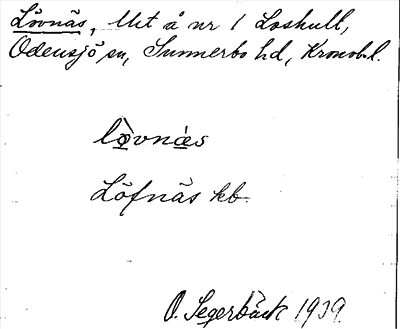 Lövnäs, Utst å nr 1 Loshult,
Odensjö sn, Sunnerbo hd, Kronob. l.
lò̲vná̲s
Löfnäs kb.
O. Segerbäck 1939.